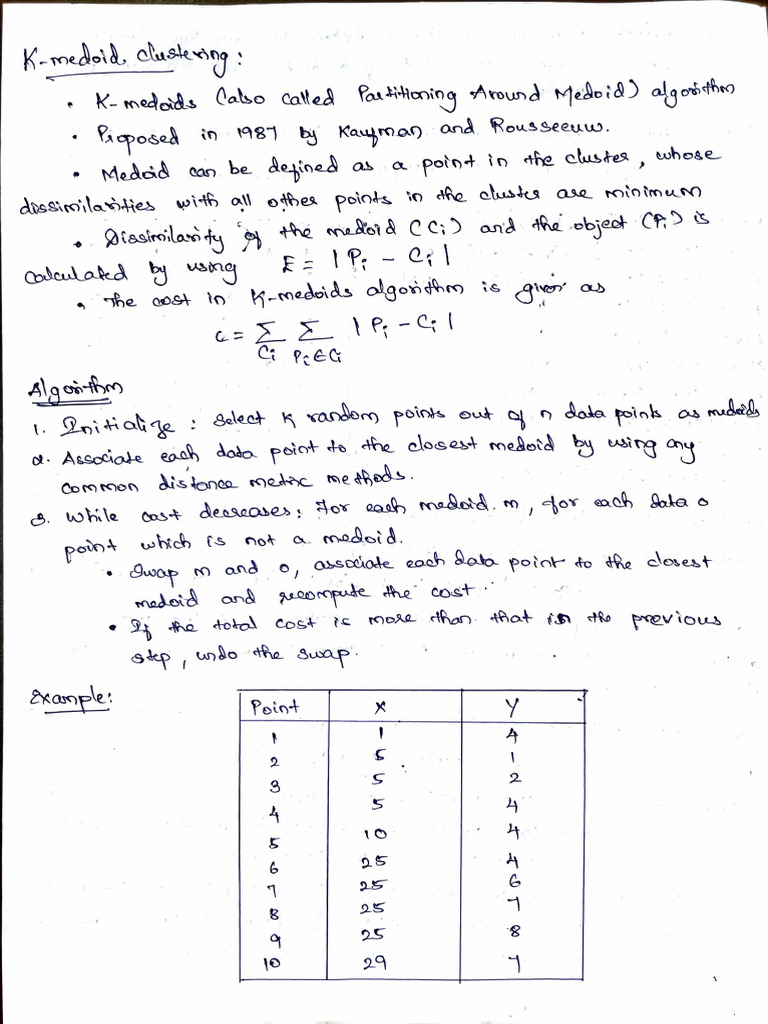 K-medoid clustering:
• K-medoids (also called Partitioning Around Medoid) algorithm
• Proposed in 1987 by Kaufman and Rousseeuw.
• Medoid can be defined as a point in the cluster, whose
dissimilarities with all other points in the cluster are minimum
• Dissimilarity of the medoid (Ci) and the object (Pi) is
calculated by using E = |Pi - Ci|
• The cost in K-medoids algorithm is given as
c = Σ Σ |Pi - Ci|
Ci Pi∈Ci
Algorithm
1. Initialize: Select K random points out of n data points as medoids
2. Associate each data point to the closest medoid by using any
common distance metric methods.
3. While cost decreases: For each medoid m, for each data o
point which is not a medoid.
• Swap m and o, associate each data point to the closest
medoid and recompute the cost.
• If the total cost is more than that in the previous
step, undo the swap.
Example:
Point X Y
1 1 4
2 5 1
3 5 2
4 5 4
5 10 4
6 25 4
7 25 6
8 25 7
9 25 8
10 29 7